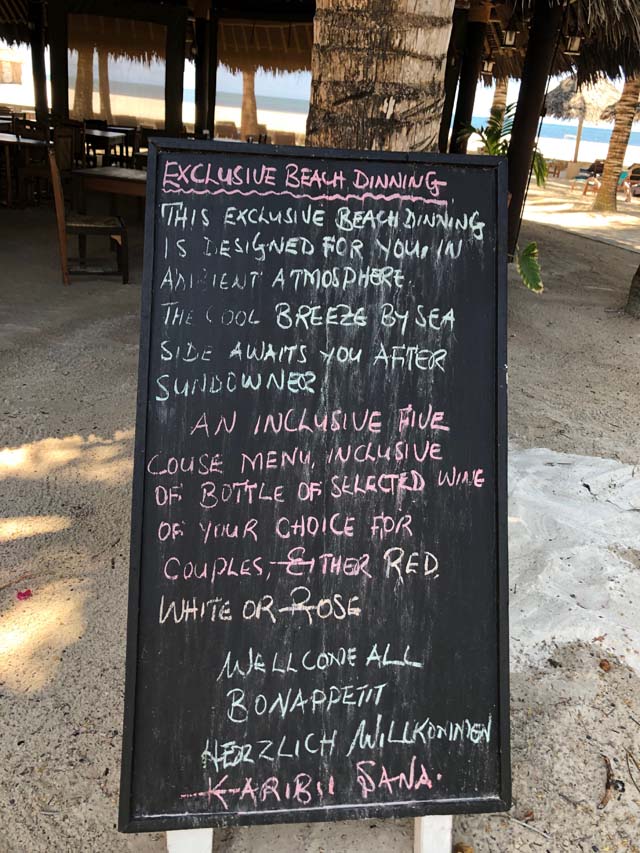 EXCLUSIVE BEACH DINNING
THIS EXCLUSIVE BEACH DINNING
IS DESIGNED FOR YOU, IN
AMBIENT ATMOSPHERE.
THE COOL BREEZE BY SEA
SIDE AWAITS YOU AFTER
SUNDOWNER
AN INCLUSIVE FIVE
COUSE MENU, INCLUSIVE
OF BOTTLE OF SELECTED WINE
OF YOUR CHOICE FOR
COUPLES, EITHER RED,
WHITE OR ROSE
WELLCOME ALL
BONAPPETIT
HERZLICH WILLKOMMEN
KARIBU SANA.